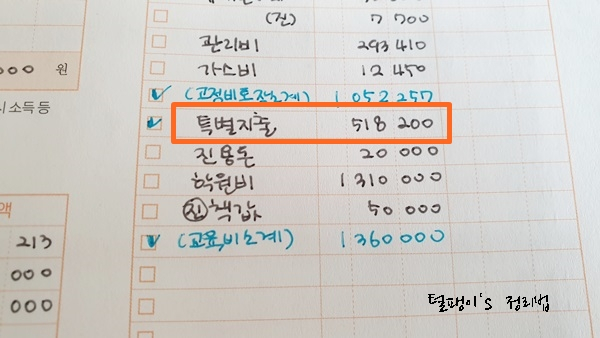 (전) 7 700
관리비 293 410
가스비 12 450
000 원
(고정비호전소계) 1 052 257
시소득 등
특별지출 518 200
진용돈 20 000
학원비 1 310 000
액
진 책값 50 000
213
(교육비소계) 1 360 000
000
000
털팽이's 정리법